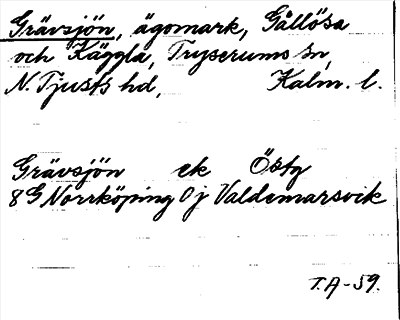 Grävsjön, ägomark, Gållösa
och Käggla, Tryserums sn,
N. Tjusts hd, Kalm. l.
Grävsjön ek Östg
8G Norrköping 0j Valdemarsvik
T.A-59.